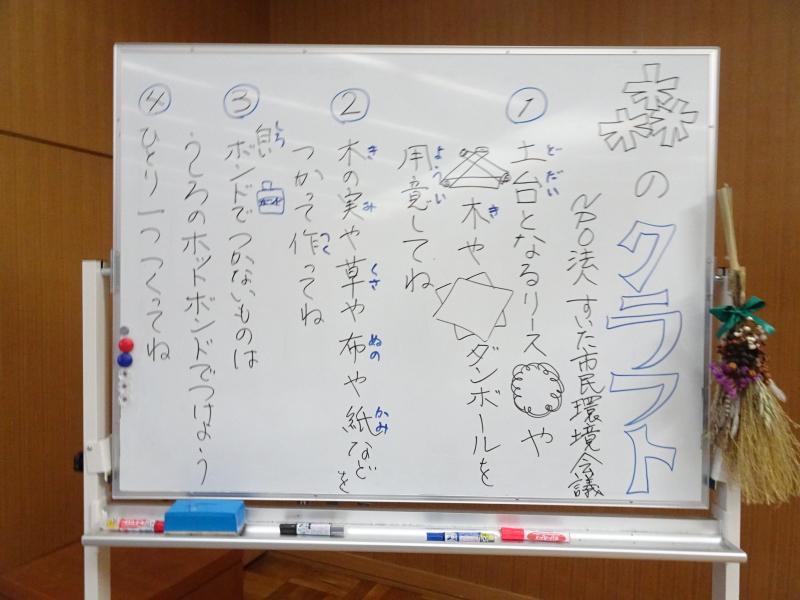 森のクラフト
NPO法人 すいた市民環境会議
①
どだい
土台となるリース や
き
木や ダンボールを
ようい
用意してね
②
き み くさ ぬの かみ
木の実や草や布や紙などを
つく
つかって作ってね
③
しろ
白い
ボンドでつかないものは
うしろのホットボンドでつけよう
④
ひとり一つつくってね